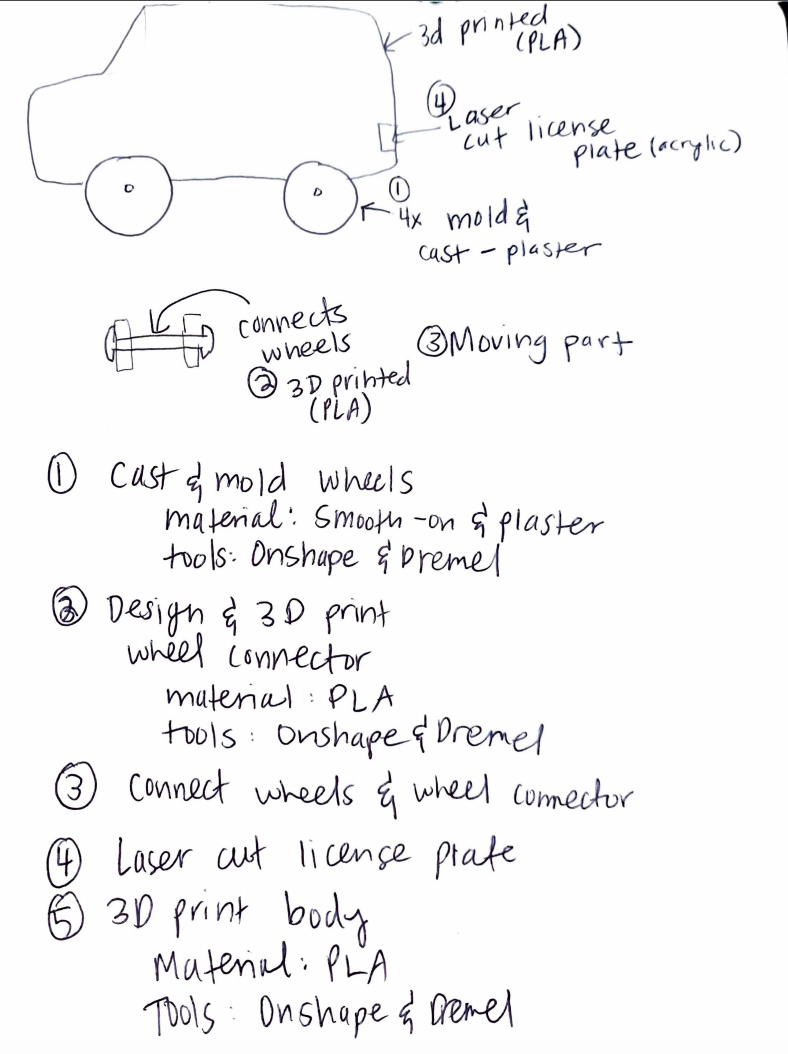 3d printed
(PLA)
④
Laser
cut license
plate (acrylic)
①
4x mold &
cast - plaster
connects
wheels
② 3D printed
(PLA)
③ Moving part
① Cast & mold wheels
material: Smooth-on & plaster
tools: Onshape & Dremel
② Design & 3D print
wheel connector
material: PLA
tools: Onshape & Dremel
③ Connect wheels & wheel connector
④ Laser cut license plate
⑤ 3D print body
Material: PLA
Tools: Onshape & Dremel